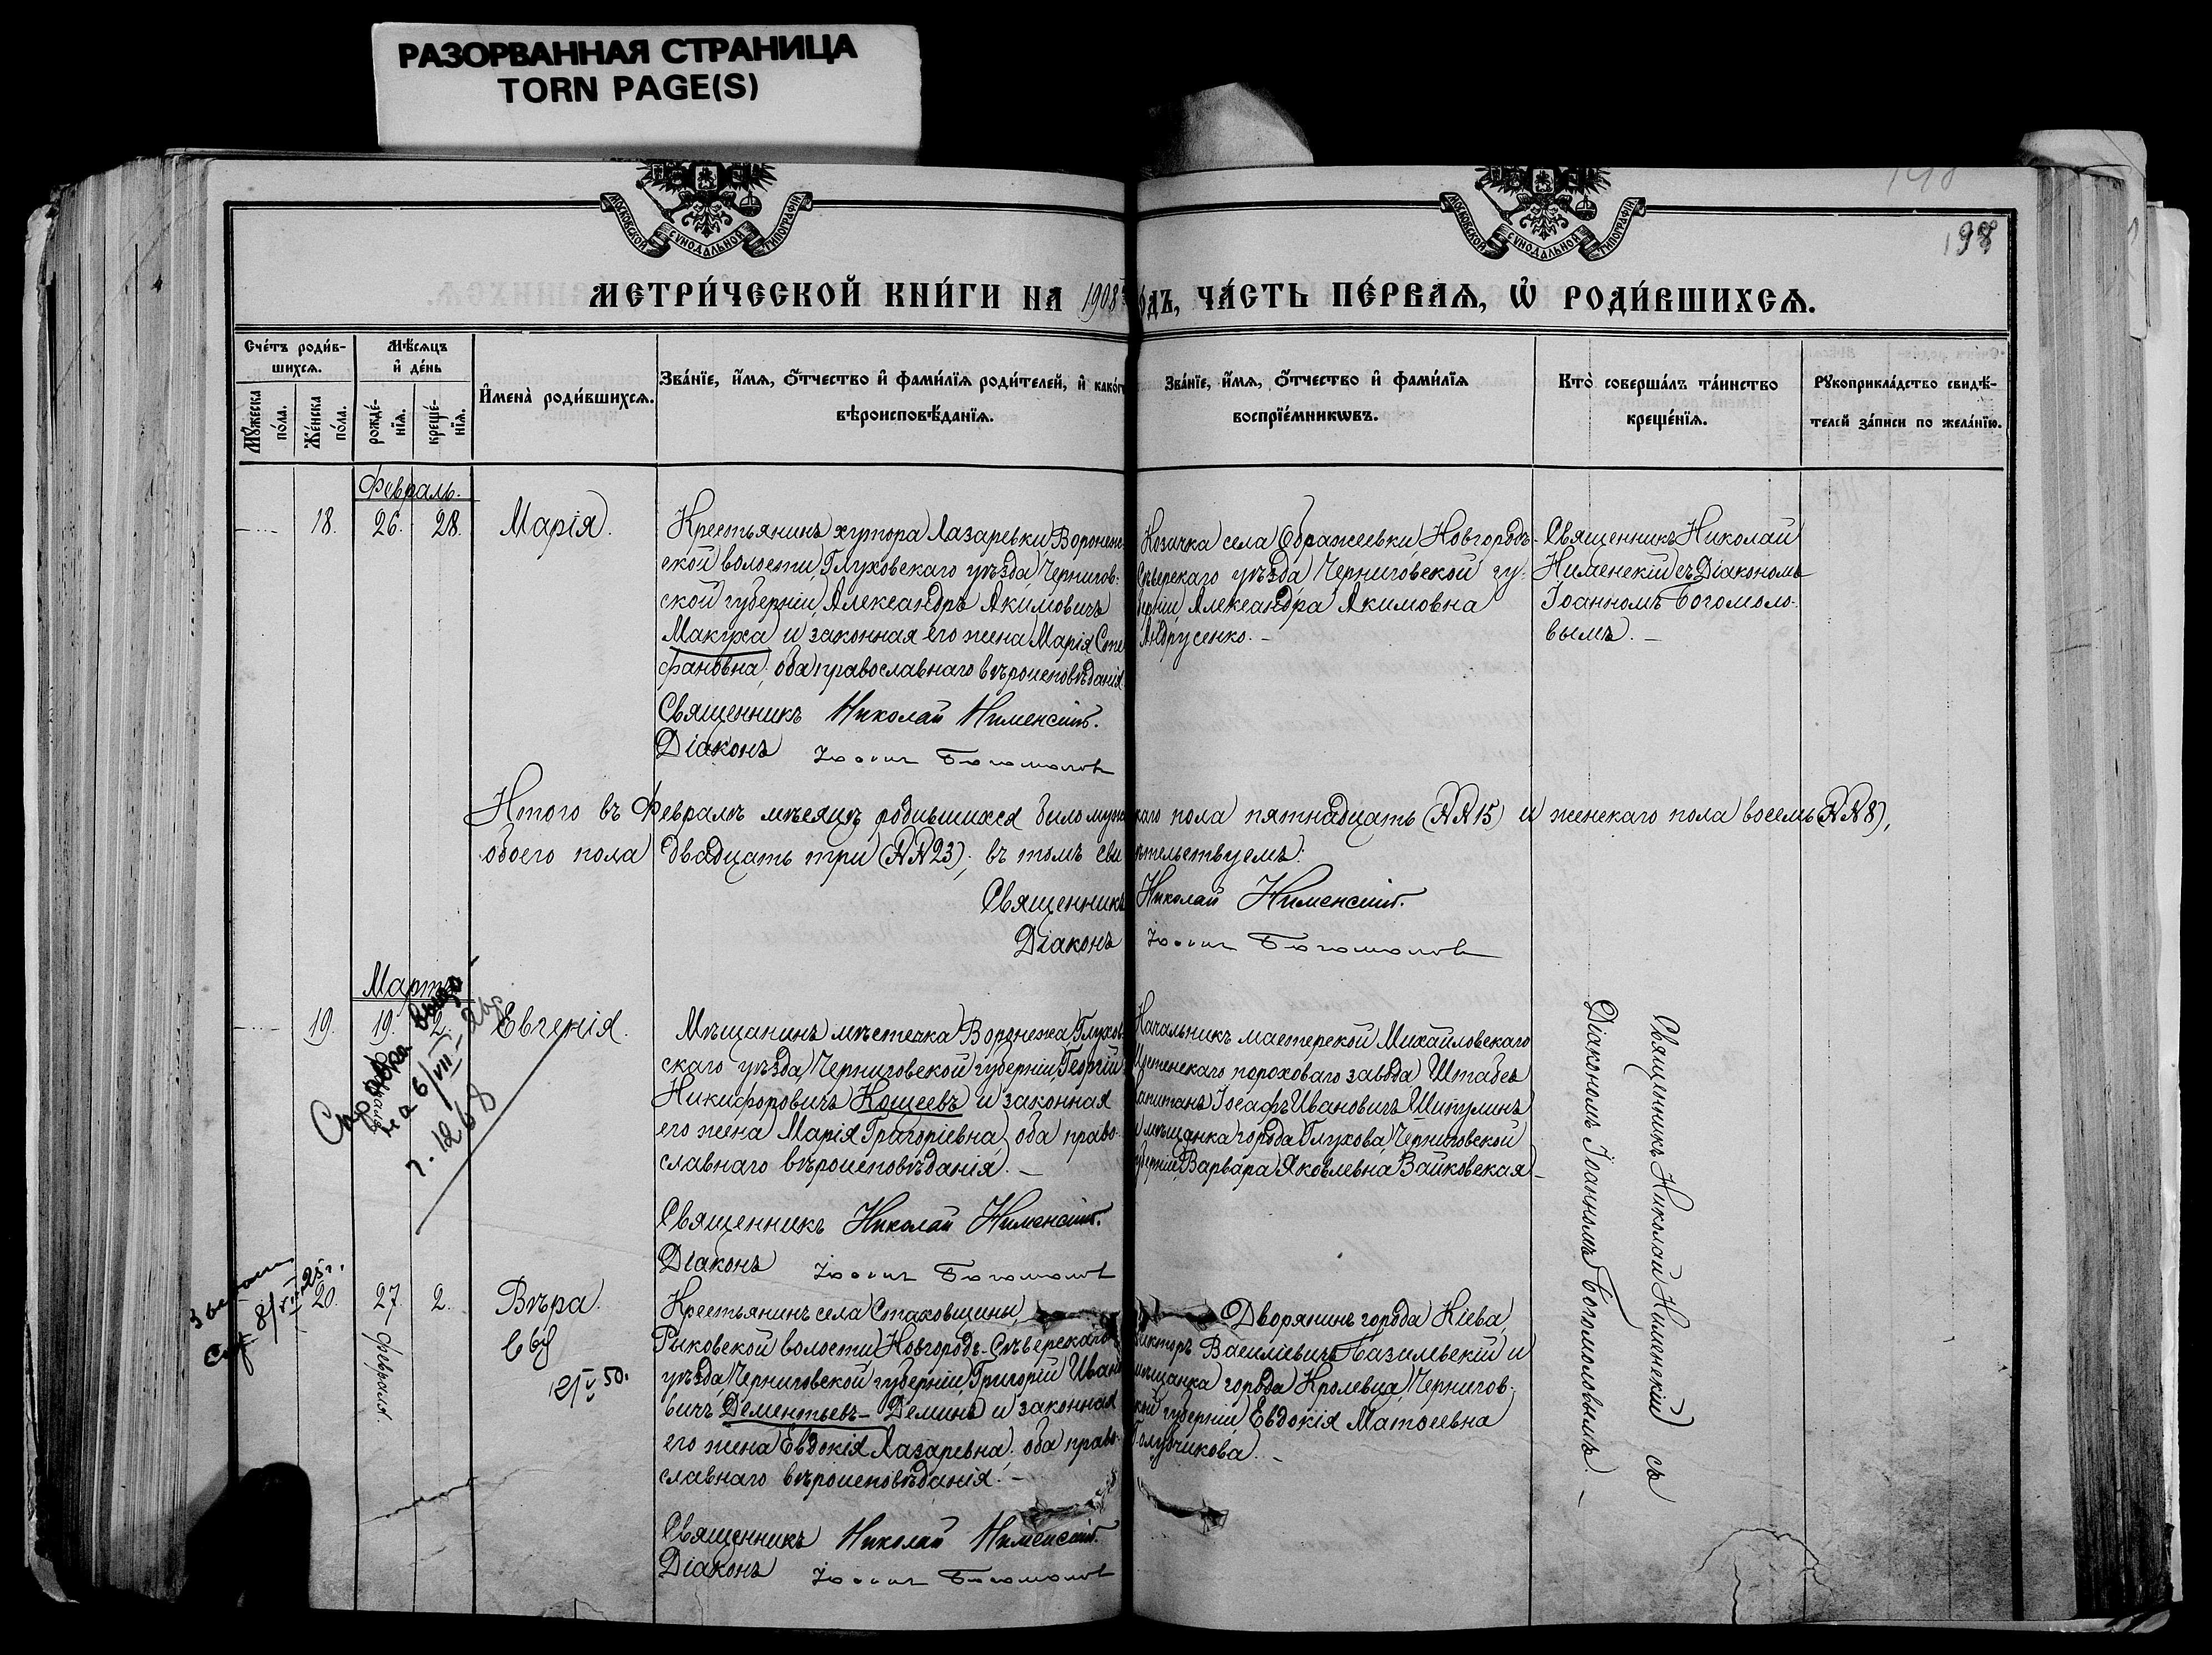 РАЗОРВАННАЯ СТРАНИЦА
TORN PAGE(S)
МОСКОВСКОЙ СѴНОДАЛЬНОЙ ТИПОГРАФІИ
МОСКОВСКОЙ СѴНОДАЛЬНОЙ ТИПОГРАФІИ
198
МЕТРИ́ЧЕСКОЙ КНИ́ГИ НА 1908 ГОДЪ, ЧА́СТЬ ПЕ́РВАѦ, Ѡ РОДИ́ВШИХСѦ.
Сче́тъ роди́в-
шихсѧ.
Мꙋ́жеска по́ла.
Же́нска по́ла.
Мѣ́сѧцъ
и҆ де́нь
рожде́-
нїѧ.
креще́-
нїѧ.
И҆мена̀ роди́вшихсѧ.
Зва́нїе, и҆́мѧ, ѻ҆́тчество и҆ фами́лїѧ роди́телей, и҆ како́гѡ
вѣроисповѣ́данїѧ.
Зва́нїе, и҆́мѧ, ѻ҆́тчество и҆ фами́лїѧ
воспрїе́мникѡвъ.
Кто̀ соверша́лъ та́инство
креще́нїѧ.
Рꙋкоприкла́дство свидѣ́-
телей за́писи по жела́нїю.
Февраль.
18. 26. 28. Марія.
Крестьянинъ хутора Лазаревки, Воронеж-
ской волости, Глуховскаго уѣзда, Чернигов-
ской губерніи, Александръ Акимовичъ
Макуха и законная его жена Марія Сте-
фановна; оба православнаго вѣроисповѣданія.
Священникъ Николай Нименскій.
Діаконъ Іоаннъ Богомоловъ
Козачка села Ображеевки, Новгородъ-
Сѣверскаго уѣзда, Черниговской гу-
берніи, Александра Акимовна
Андрусенко. –
Священникъ Николай
Нименскій съ Діакономъ
Іоанномъ Богомоло-
вымъ. –
Итого въ Февралѣ мѣсяцѣ родившихся было мужескаго пола пятнадцать (№№15) и женскаго пола восемь (№№8),
обоего пола двадцать три (№№23); въ томъ свидѣтельствуемъ:
Священникъ Николай Нименскій.
Діаконъ Іоаннъ Богомоловъ
Мартъ
19. 19. 2. Евгенія.
Мѣщанинъ мѣстечка Воронежа, Глухов-
скаго уѣзда, Черниговской губерніи, Георгій
Никифоровичъ Кощеевъ и законная
его жена Марія Григоріевна, оба право-
славнаго вѣроисповѣданія. –
Священникъ Николай Нименскій.
Діаконъ Іоаннъ Богомоловъ
Начальникъ мастерской Михайловскаго
Шостенскаго пороховаго завода, Штабсъ
Капитанъ Іосафъ Ивановичъ Шипулинъ
и мѣщанка города Глухова, Черниговской
губерніи, Варвара Яковлевна Вайковская –
Священникъ Николай Нименскій съ
Діакономъ Іоанномъ Богомоловымъ. –
20. 27 2. Вѣра.
февраля.
Крестьянинъ села Стаховщины,
Рыковской волости, Новгородъ-Сѣверскаго
уѣзда, Черниговской губерніи, Григорій Ивано-
вичъ Дементьевъ-Деминъ и законная
его жена Евдокія Лазаревна; оба право-
славнаго вѣроисповѣданія. –
Священникъ Николай Нименскій.
Діаконъ Іоаннъ Богомоловъ
Дворянинъ города Кіева,
Викторъ Василіевичъ Базилевскій и
мѣщанка города Кролевца, Чернигов-
ской губерніи, Евдокія Матѳеевна
Голубчикова. –